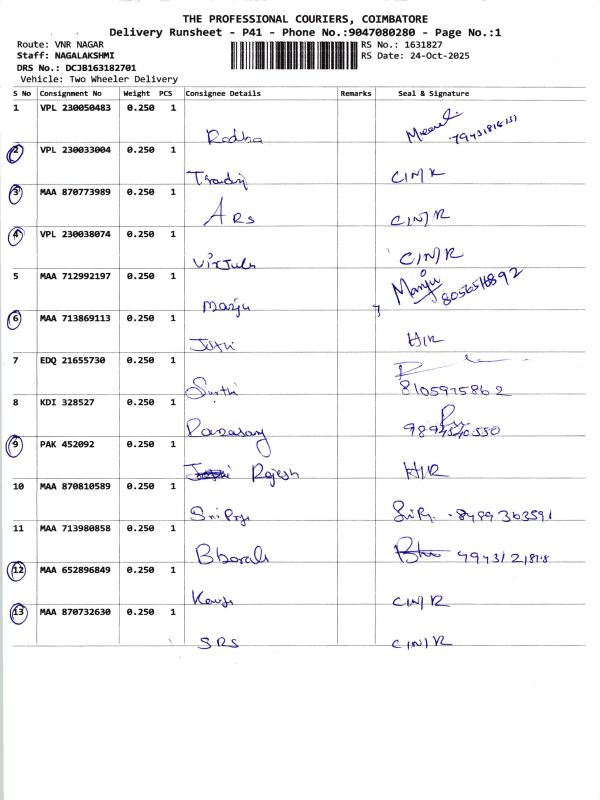 THE PROFESSIONAL COURIERS, COIMBATORE
Delivery Runsheet - P41 - Phone No.:9047080280 - Page No.:1
Route: VNR NAGAR RS No.: 1631827
Staff: NAGALAKSHMI RS Date: 24-Oct-2025
DRS No.: DCJB163182701
Vehicle: Two Wheeler Delivery
S No Consignment No Weight PCS Consignee Details Remarks Seal & Signature
1 VPL 230050483 0.250 1
Radha
2 VPL 230033004 0.250 1
C/N/R
3 MAA 870773989 0.250 1
ARS C/N/R
4 VPL 230038074 0.250 1
C/N/R
5 MAA 712992197 0.250 1
Manju Manju
6 MAA 713869113 0.250 1
Jothi H/R
7 EDQ 21655730 0.250 1
8105975862
8 KDI 328527 0.250 1
9 PAK 452092 0.250 1
Rajesh H/R
10 MAA 870810589 0.250 1
8489363591
11 MAA 713980858 0.250 1
12 MAA 652896849 0.250 1
C/N/R
13 MAA 870732630 0.250 1
SRS C/N/R